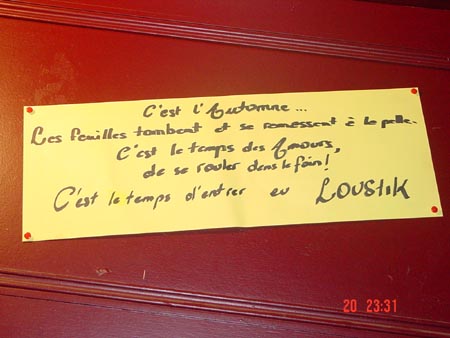 C'est l'Automne...
Les feuilles tombent et se ramassent à la pelle.
C'est le temps des Amours,
de se rouler dans le foin!
C'est le temps d'entrer au LOUSTIK
20 23:31